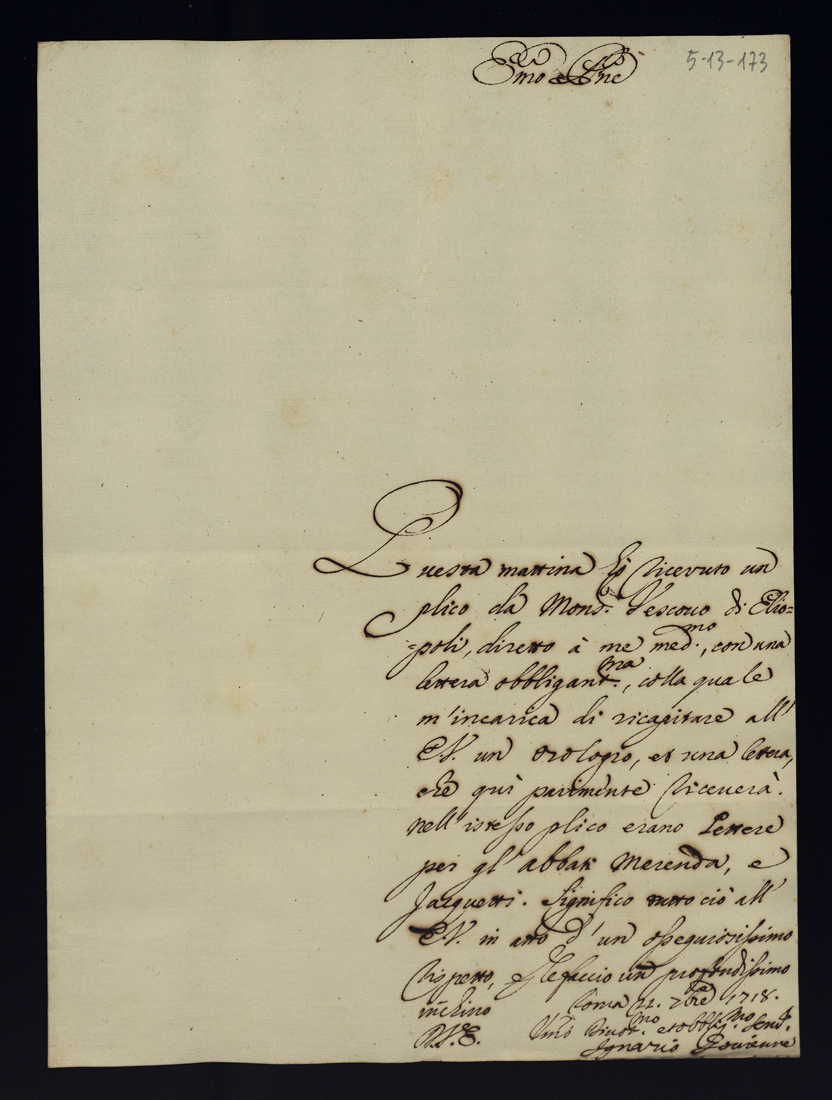 5-13-173
Emo e Pne
Questa mattina hò ricevuto un
plico da Mons.r Vescovo di Elio=
=poli, diretto à me med.mo, con una
lettera obbligant.ma, colla quale
m'incarica di ricapitare all'
E.V. un orologio, et una lettera,
che quì parimente riceverà.
Nell'istesso plico erano lettere
per gl'abbati Merenda, e
Jacquetti. Significo tutto ciò all'
E.V. in atto d'un ossequiosissimo
rispetto, e le faccio un profondissimo
inchino Roma 22. 7bre 1718.
D.V.E. Umo Divot.mo et obblig.mo Serv.
Ignazio